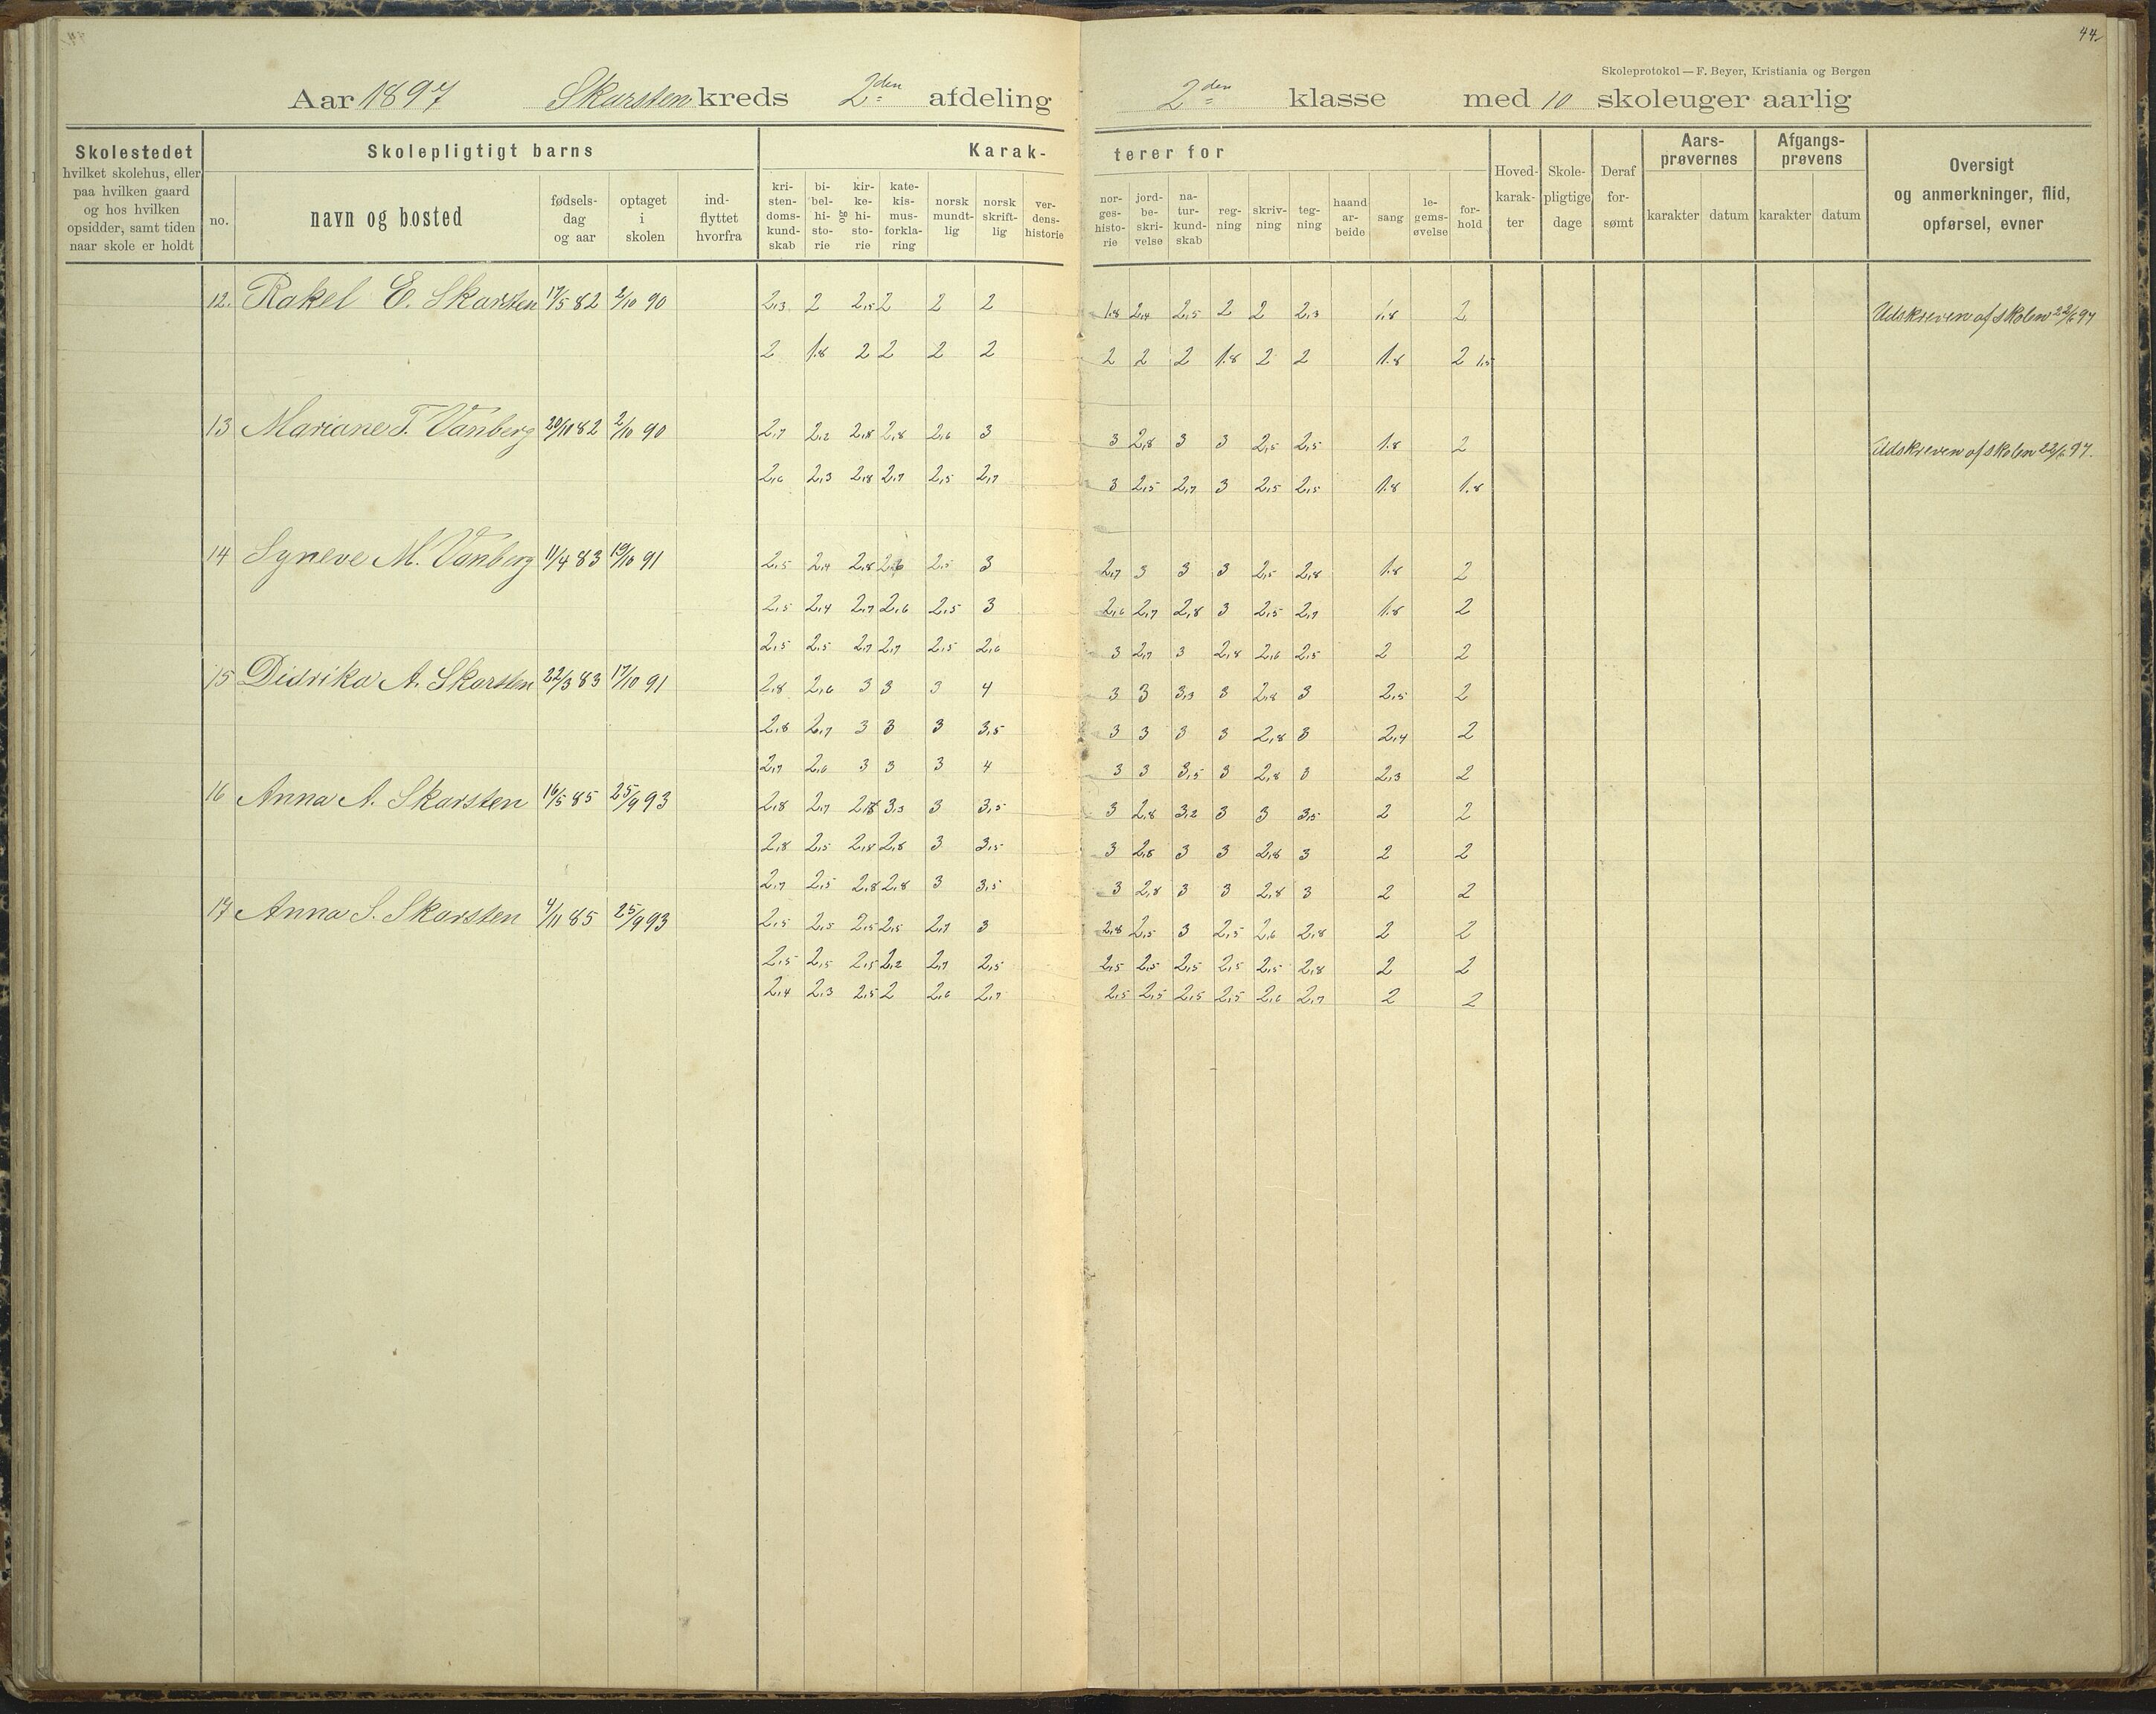 44.
Skoleprotokol — F. Beyer, Kristiania og Bergen
Aar 1897 Skarsten kreds 2den afdeling 2den klasse med 10 skoleuger aarlig
Skolestedet hvilket skolehus, eller paa hvilken gaard og hos hvilken opsidder, samt tiden naar skole er holdt
Skolepligtigt barns
no. navn og bosted fødsels-dag og aar optaget i skolen ind-flyttet hvorfra
Karak-terer for
kri-sten-doms-kund-skab bi-bel-hi-sto-rie kir-ke-hi-sto-rie og kate-kis-mus-forkla-ring norsk mundt-lig norsk skrift-lig ver-dens-historie nor-ges-histo-rie jord-be-skri-velse na-tur-kund-skab reg-ning skriv-ning teg-ning haand ar-beide sang le-gems-øvelse for-hold
Hoved-karak-ter Skole-pligtige dage Deraf for-sømt
Aars-prøvernes karakter datum
Afgangs-prøvens karakter datum
Oversigt og anmerkninger, flid, opførsel, evner
12. Rakel E. Skarsten 17/5 82 2/10 90 2,3 2 2,5 2 2 2 1.8 2,4 2,5 2 2 2,3 1.8 2 Udskreven af skolen 22/6 97
2 1.8 2 2 2 2 2 2 2 1.8 2 2 1.8 2 1,5
13 Mariane T. Vanberg 20/10 82 2/10 90 2,7 2,2 2,8 2,8 2,6 3 3 2,8 3 3 2,5 2,5 1.8 2 Udskreven af skolen 22/6 97.
2,6 2,3 2,8 2,7 2,5 2,7 3 2,5 2,7 3 2,5 2,5 1.8 1.8
14 Syneve M. Vanberg 11/4 83 19/10 91 2,5 2,4 2,8 2,6 2,5 3 2,7 3 3 3 2,5 2,8 1.8 2
2,5 2,4 2,7 2,6 2,5 3 2,6 2,7 2,8 3 2,5 2,7 1.8 2
2,5 2,5 2,7 2,7 2,5 2,6 3 2,7 3 2,8 2,6 2,5 2 2
15 Didrika A. Skarsten 22/3 83 17/10 91 2,8 2,6 3 3 3 4 3 3 3,3 3 2,8 3 2,5 2
2,8 2,7 3 3 3 3,5 3 3 3 3 2,8 3 2,4 2
2,7 2,6 3 3 3 4 3 3 3,5 3 2,8 3 2,3 2
16 Anna A. Skarsten 16/5 85 25/9 93 2,8 2,7 2,8 3,3 3 3,5 3 2,8 3,2 3 3 3,5 2 2
2,8 2,5 2,8 2,8 3 3,5 3 2,8 3 3 2,8 3 2 2
2,7 2,5 2,8 2,8 3 3,5 3 2,8 3 3 2,8 3 2 2
17 Anna S. Skarsten 4/11 85 25/9 93 2,5 2,5 2,5 2,5 2,7 3 2,8 2,5 3 2,5 2,6 2,8 2 2
2,5 2,5 2,5 2,2 2,7 2,5 2,5 2,5 2,5 2,5 2,5 2,8 2 2
2,4 2,3 2,5 2 2,6 2,7 2,5 2,5 2,5 2,5 2,6 2,7 2 2